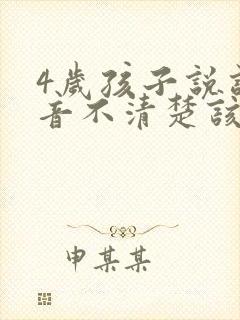 4歲孩子説
音不清楚該
申某某